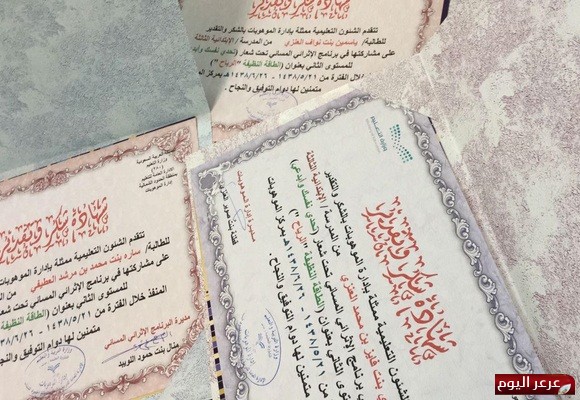 تتقدم الشئون التعليمية ممثلة بإدارة الموهوبات بالشكر والتقدير
للطالبة/ ياسمين بنت نواف العنزي من المدرسة / الإبتدائية الثالثة
على مشاركتها في برنامج الإثرائي المسائي تحت شعار (تحدي نفسك وأبدعي)
للمستوى الثاني بعنوان (الطاقة النظيفة "الرياح")
خلال الفترة من ١٤٣٨/٥/٢١ - ١٤٣٨/٦/٢٦هـ بمركز
متمنين لها دوام التوفيق والنجاح .
المملكة العربية السعودية
وزارة التعليم
بمنطقة الحدود الشمالية
إدارة الموهوبات
شهادة شكر وتقدير
تتقدم الشئون التعليمية ممثلة بإدارة الموهوبات
للطالبة/ ساره بنت محمد بن مرشد العطيفي من
على مشاركتها في برنامج الإثرائي المسائي تحت شعار
للمستوى الثاني بعنوان (الطاقة النظيفة
المنفذ خلال الفترة من ١٤٣٨/٥/٢١ -
متمنين لها دوام التوفيق والنجاح
مديرة البرنامج الإثرائي المسائي
منال بنت حمود النويبد
وزارة التعليم
شهادة شكر وتقدير
الشئون التعليمية ممثلة بإدارة الموهوبات بالشكر والتقدير
بنت فايز بن محمد العنزي من المدرسة / الإبتدائية الثالثة
برنامج الإثرائي المسائي تحت شعار (تحدي نفسك وأبدعي)
الثاني بعنوان (الطاقة النظيفة "الرياح")
١٤٣٨/٥/٢١ - ١٤٣٨/٦/٢٦هـ بمركز الموهوبات
لها دوام التوفيق والنجاح .
مديرة إدارة الموهوبات
عرعر اليوم